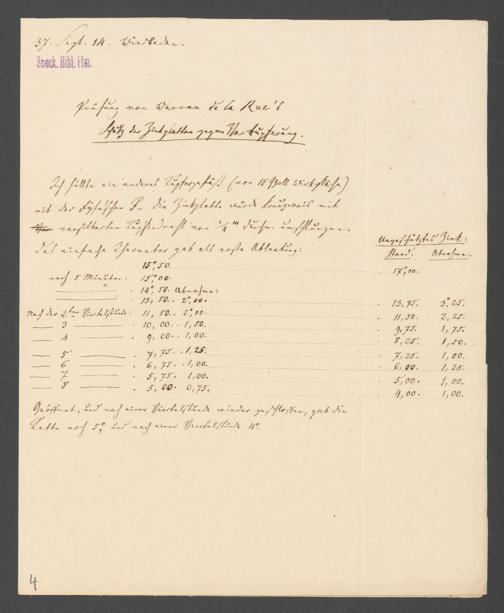 37. Sept. 14. Wiesbaden.
Senck. Bibl. Ffm.
Prüfung von Warren de la Rue's
Schutz der Zinkplatten gegen Verkupferung.
Ich füllte ein anderes Kupfergefäß (von 18 Zoll Wirkfläche)
mit der Fl. die Zinkplatte wurde kreuzweis mit
versilberten Kupferdraht von 1/4 ''' Durchm. umschlungen.
Das einfache gab als erste Ablenkung:
Ungeschütztes Zink:
Stand. Abnahme.
15°,50. 17°,00.
nach 5 Minuten: 15°,00.
14°,50. Abnahme:
13,50. 2°,00. 13,75. 3°,25.
Nach der 2ten Viertelstunde: 11,50. 2°,00. 11,50. 2,25.
3 10,00. 1,50. 9,75. 1,75.
4 9,00. 1,00. 8,25. 1,50.
5 7,75. 1,25. 7,25. 1,00.
6 6,75. 1,00. 6,00. 1,25.
7 5,75. 1,00. 5,00. 1,00.
8 5,00. 0,75. 4,00. 1,00.
Geöffnet, und nach einer Viertelstunde wieder geschlossen, gab die
Kette noch 5°, und nach einer Viertelstunde 4°.
4